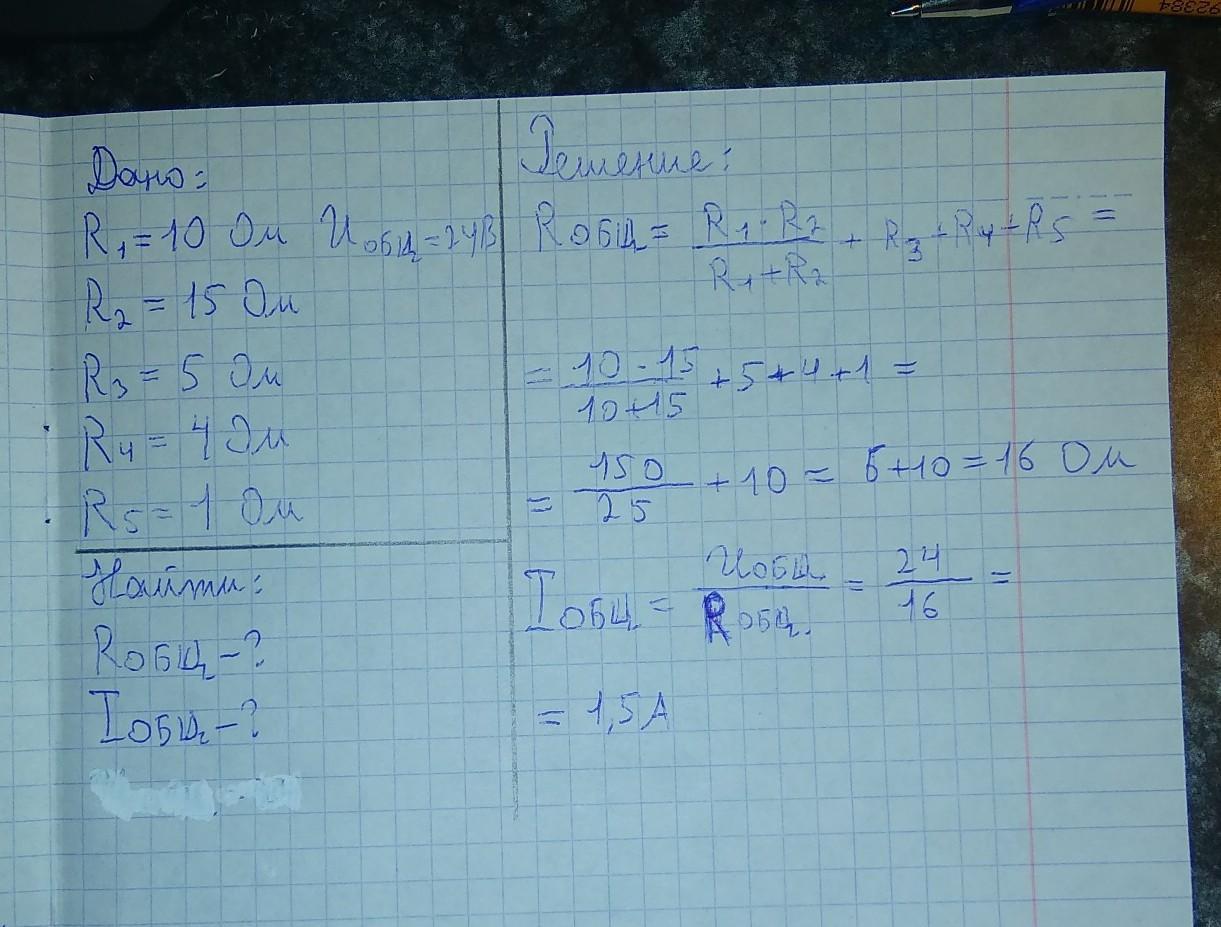 92384
Дано:
R₁ = 10 Ом Uобщ = 24В
R₂ = 15 Ом
R₃ = 5 Ом
R₄ = 4 Ом
R₅ = 1 Ом
Найти:
Rобщ – ?
Iобщ – ?
Решение:
Rобщ = (R₁ · R₂)/(R₁ + R₂) + R₃ + R₄ + R₅ =
= (10 · 15)/(10 + 15) + 5 + 4 + 1 =
= 150/25 + 10 = 6 + 10 = 16 Ом
Iобщ = Uобщ/Rобщ. = 24/16 =
= 1,5 А